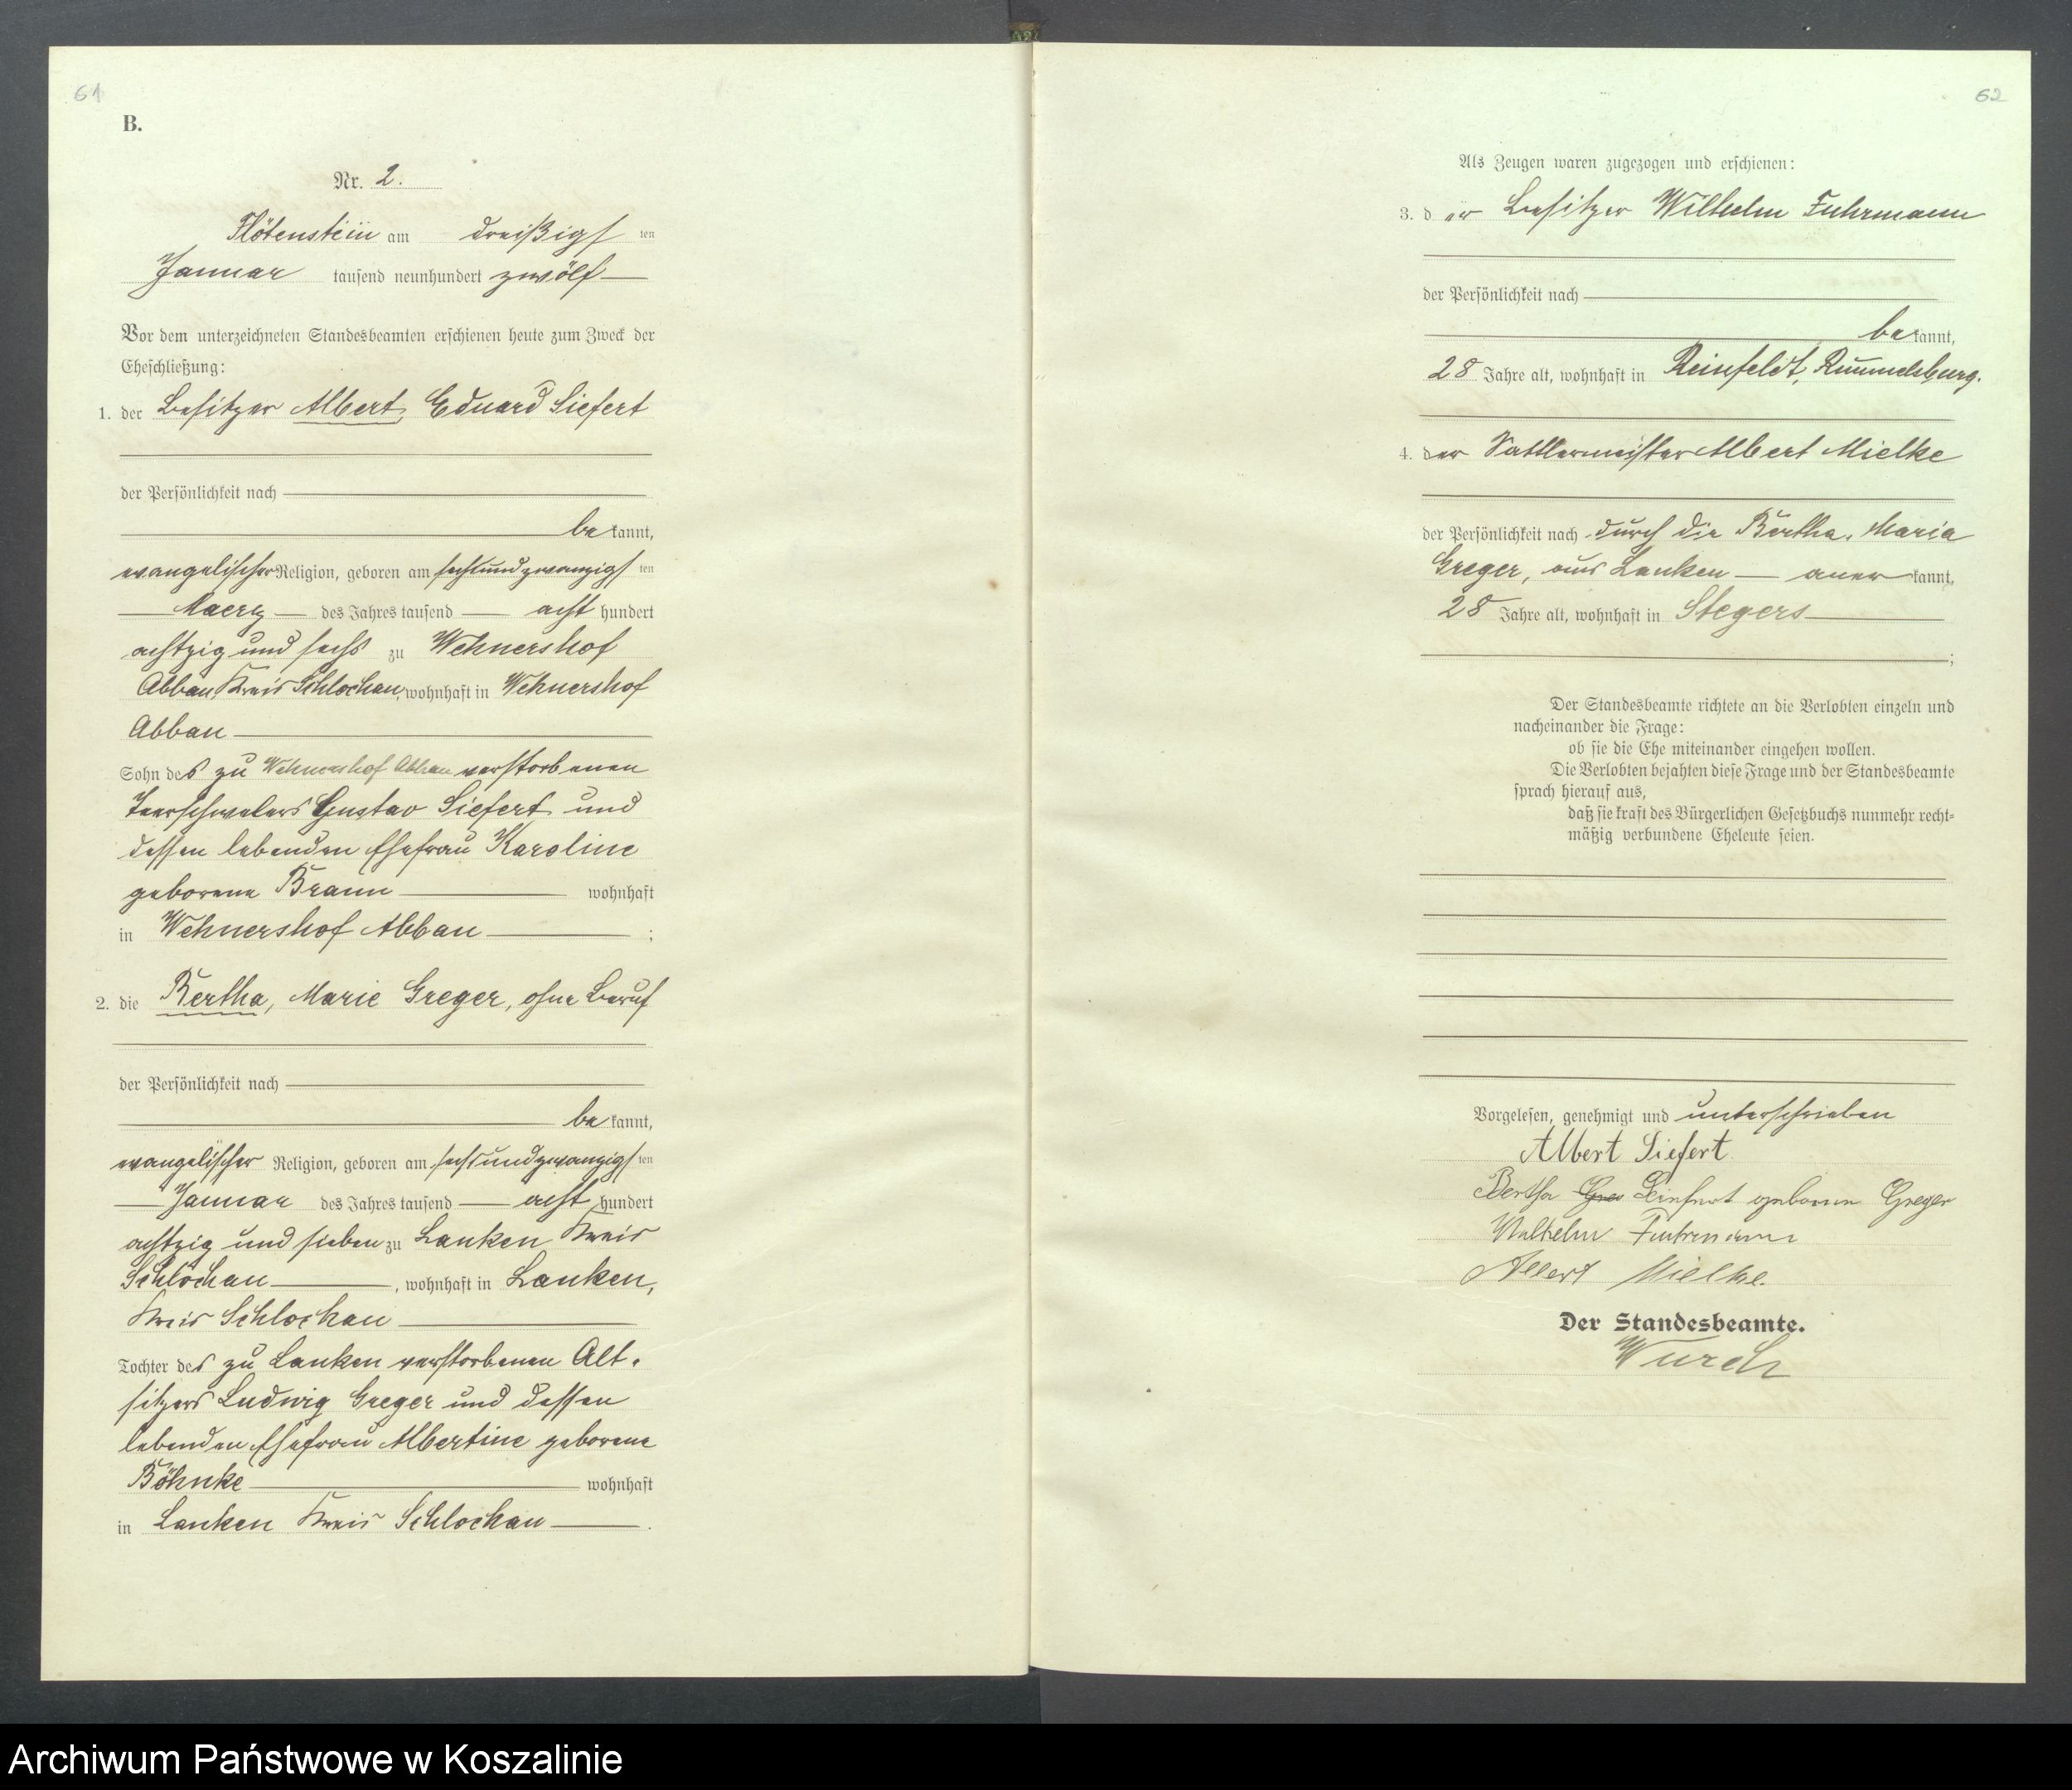 61
B.
Nr. 2.
Flötenstein am dreißigsten
Januar tausend neunhundert zwölf
Vor dem unterzeichneten Standesbeamten erschienen heute zum Zweck der
Eheschließung:
1. der Besitzer Albert, Eduard Siefert
der Persönlichkeit nach
bekannt,
evangelischer Religion, geboren am sechsundzwanzigsten
Maerz des Jahres tausend acht hundert
achtzig und sechs zu Wehnershof
Abbau, Kreis Schlochau, wohnhaft in Wehnershof
Abbau
Sohn des zu Wehnershof Abbau verstorbenen
Teerschwelers Gustav Siefert und
dessen lebenden Ehefrau Karoline
geborene Braun wohnhaft
in Wehnershof Abbau ;
2. die Bertha, Marie Greger, ohne Beruf
der Persönlichkeit nach
bekannt,
evangelischer Religion, geboren am sechsundzwanzigsten
Januar des Jahres tausend acht hundert
achtzig und sieben zu Lanken Kreis
Schlochau , wohnhaft in Lanken,
Kreis Schlochau
Tochter des zu Lanken verstorbenen Alt-
sitzers Ludwig Greger und dessen
lebenden Ehefrau Albertine geborene
Böhnke wohnhaft
in Lanken Kreis Schlochau .
62
Als Zeugen waren zugezogen und erschienen:
3. der Besitzer Wilhelm Fuhrmann
der Persönlichkeit nach
bekannt,
28 Jahre alt, wohnhaft in Reinfeldt, Rummelsburg.
4. der Sattlermeister Albert Mielke
der Persönlichkeit nach durch die Bertha, Maria
Greger, aus Lanken anerkannt,
28 Jahre alt, wohnhaft in Stegers
;
Der Standesbeamte richtete an die Verlobten einzeln und
nacheinander die Frage:
ob sie die Ehe miteinander eingehen wollen.
Die Verlobten bejahten diese Frage und der Standesbeamte
sprach hierauf aus,
daß sie kraft des Bürgerlichen Gesetzbuchs nunmehr recht-
mäßig verbundene Eheleute seien.
Vorgelesen, genehmigt und unterschrieben
Albert Siefert.
Bertha Gre Seifert geborene Greger
Wilhelm Fuhrmann
Albert Mielke.
Der Standesbeamte.
Wurch
Archiwum Państwowe w Koszalinie